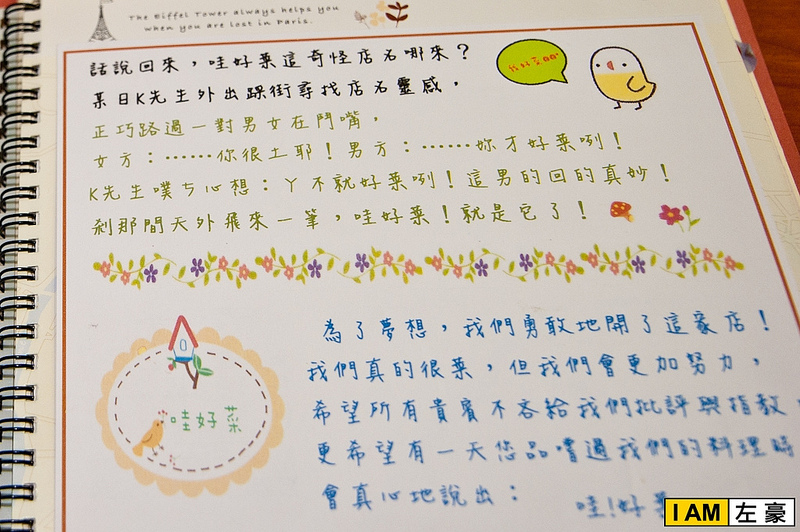 The Eiffel Tower always helps you
when you are lost in Paris.
話說回來，哇好菜這奇怪店名哪來？
某日K先生外出踩街尋找店名靈感，
正巧路過一對男女在鬥嘴，
女方：……你很土耶！男方：……妳才好菜咧！
K先生噗ㄘ心想：ㄚ不就好菜咧！這男的回的真妙！
剎那間天外飛來一筆，哇好菜！就是它了！
為了夢想，我們勇敢地開了這家店！
我們真的很菜，但我們會更加努力，
希望所有貴賓不吝給我們批評與指教
更希望有一天您品嚐過我們的料理時
會真心地說出：
哇！好
哇好菜
I AM 左豪